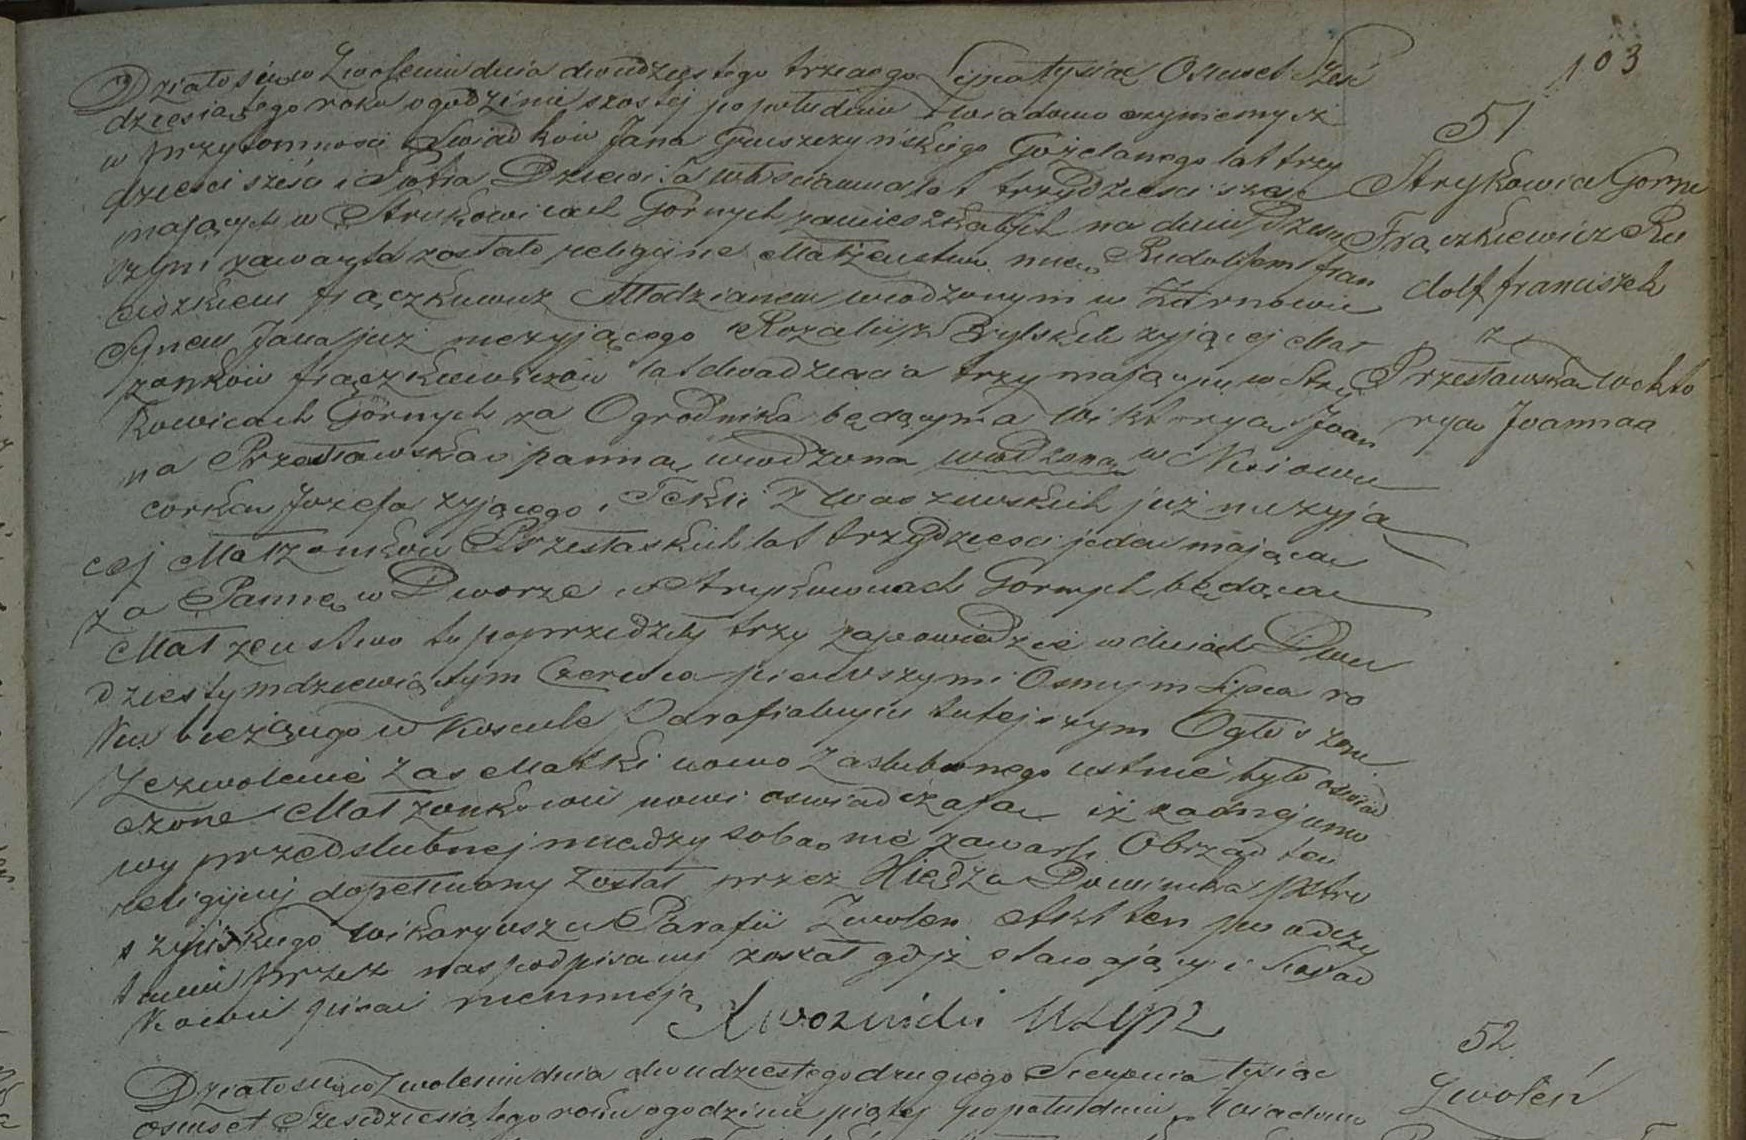 103
51
Strykowice Gorne
Frączkiewicz Ru
dolf franciszek
z
Przesławska Wikto
rya Joanna
Działo się w Zwoleniu dnia dwudziestego trzeciego Lipca tysiąc Osmset Sześć
dziesiątego roku o godzinie szostej po południu Wiadomo czyniemy iż
w przytomności Swiadkow Jana Gruszczyńskiego Gozelanego lat trzy
dzieści sześć i Dziewita włościanina lat trzydzieści sześć
mających w Strykowicach Gornych zamieszkałych na dniu dzisiej
szym zawarte zostało religijne Małżeństwo między Rudolfem fran
ciszkiem frączkiewicz Młodzianem urodzonym w Zarnowie
Synem Jana już nieżyjącego Rozalii z żyjącej Mał
żonków frączkiewiczów lat dwadzieścia trzy mającym w Stry
kowicach Gornych za Ogrodnika będącym a Wiktoryą Joan
ną Przesławską panną urodzoną urodzoną w
corką Jozefa żyjącego i Tekli z już nieżyją
cej Małżonków Przesłaskich lat trzydzieści jeden mającą
za Pannę w Dworze w Strykowicach Gornych będącą
Małżeństwo to poprzedziły trzy zapowiedzie w dniach Dwu
dziestym dziewiątym Czerwca pierwszym i Osmym Lipca ro
ku bieżącego w Kosciele Parafialnym tutejszym Ogłoszone
Zezwolenie zas Matki nowo zaślubionego ustnie było oswiad
czone Małżonkowie nowi oswiadczają iż żadnej umo
wy przedslubnej miedzy sobą nie zawarli Obrząd ten
religijny dopełniony został przez Xiędza Dominika Pstru
szyńskiego Wikaryusza Parafii Zwolen Akt ten po odczy
taniu przez nas podpisany został gdyż stawający i Swiad
kowie pisać nieumieją
52
Zwoleń
Działo się w Zwoleniu dnia dwudziestego drugiego Sierpnia tysiąc
osmset Szesdziesiątego roku o godzinie piątej po południu Wiadomo